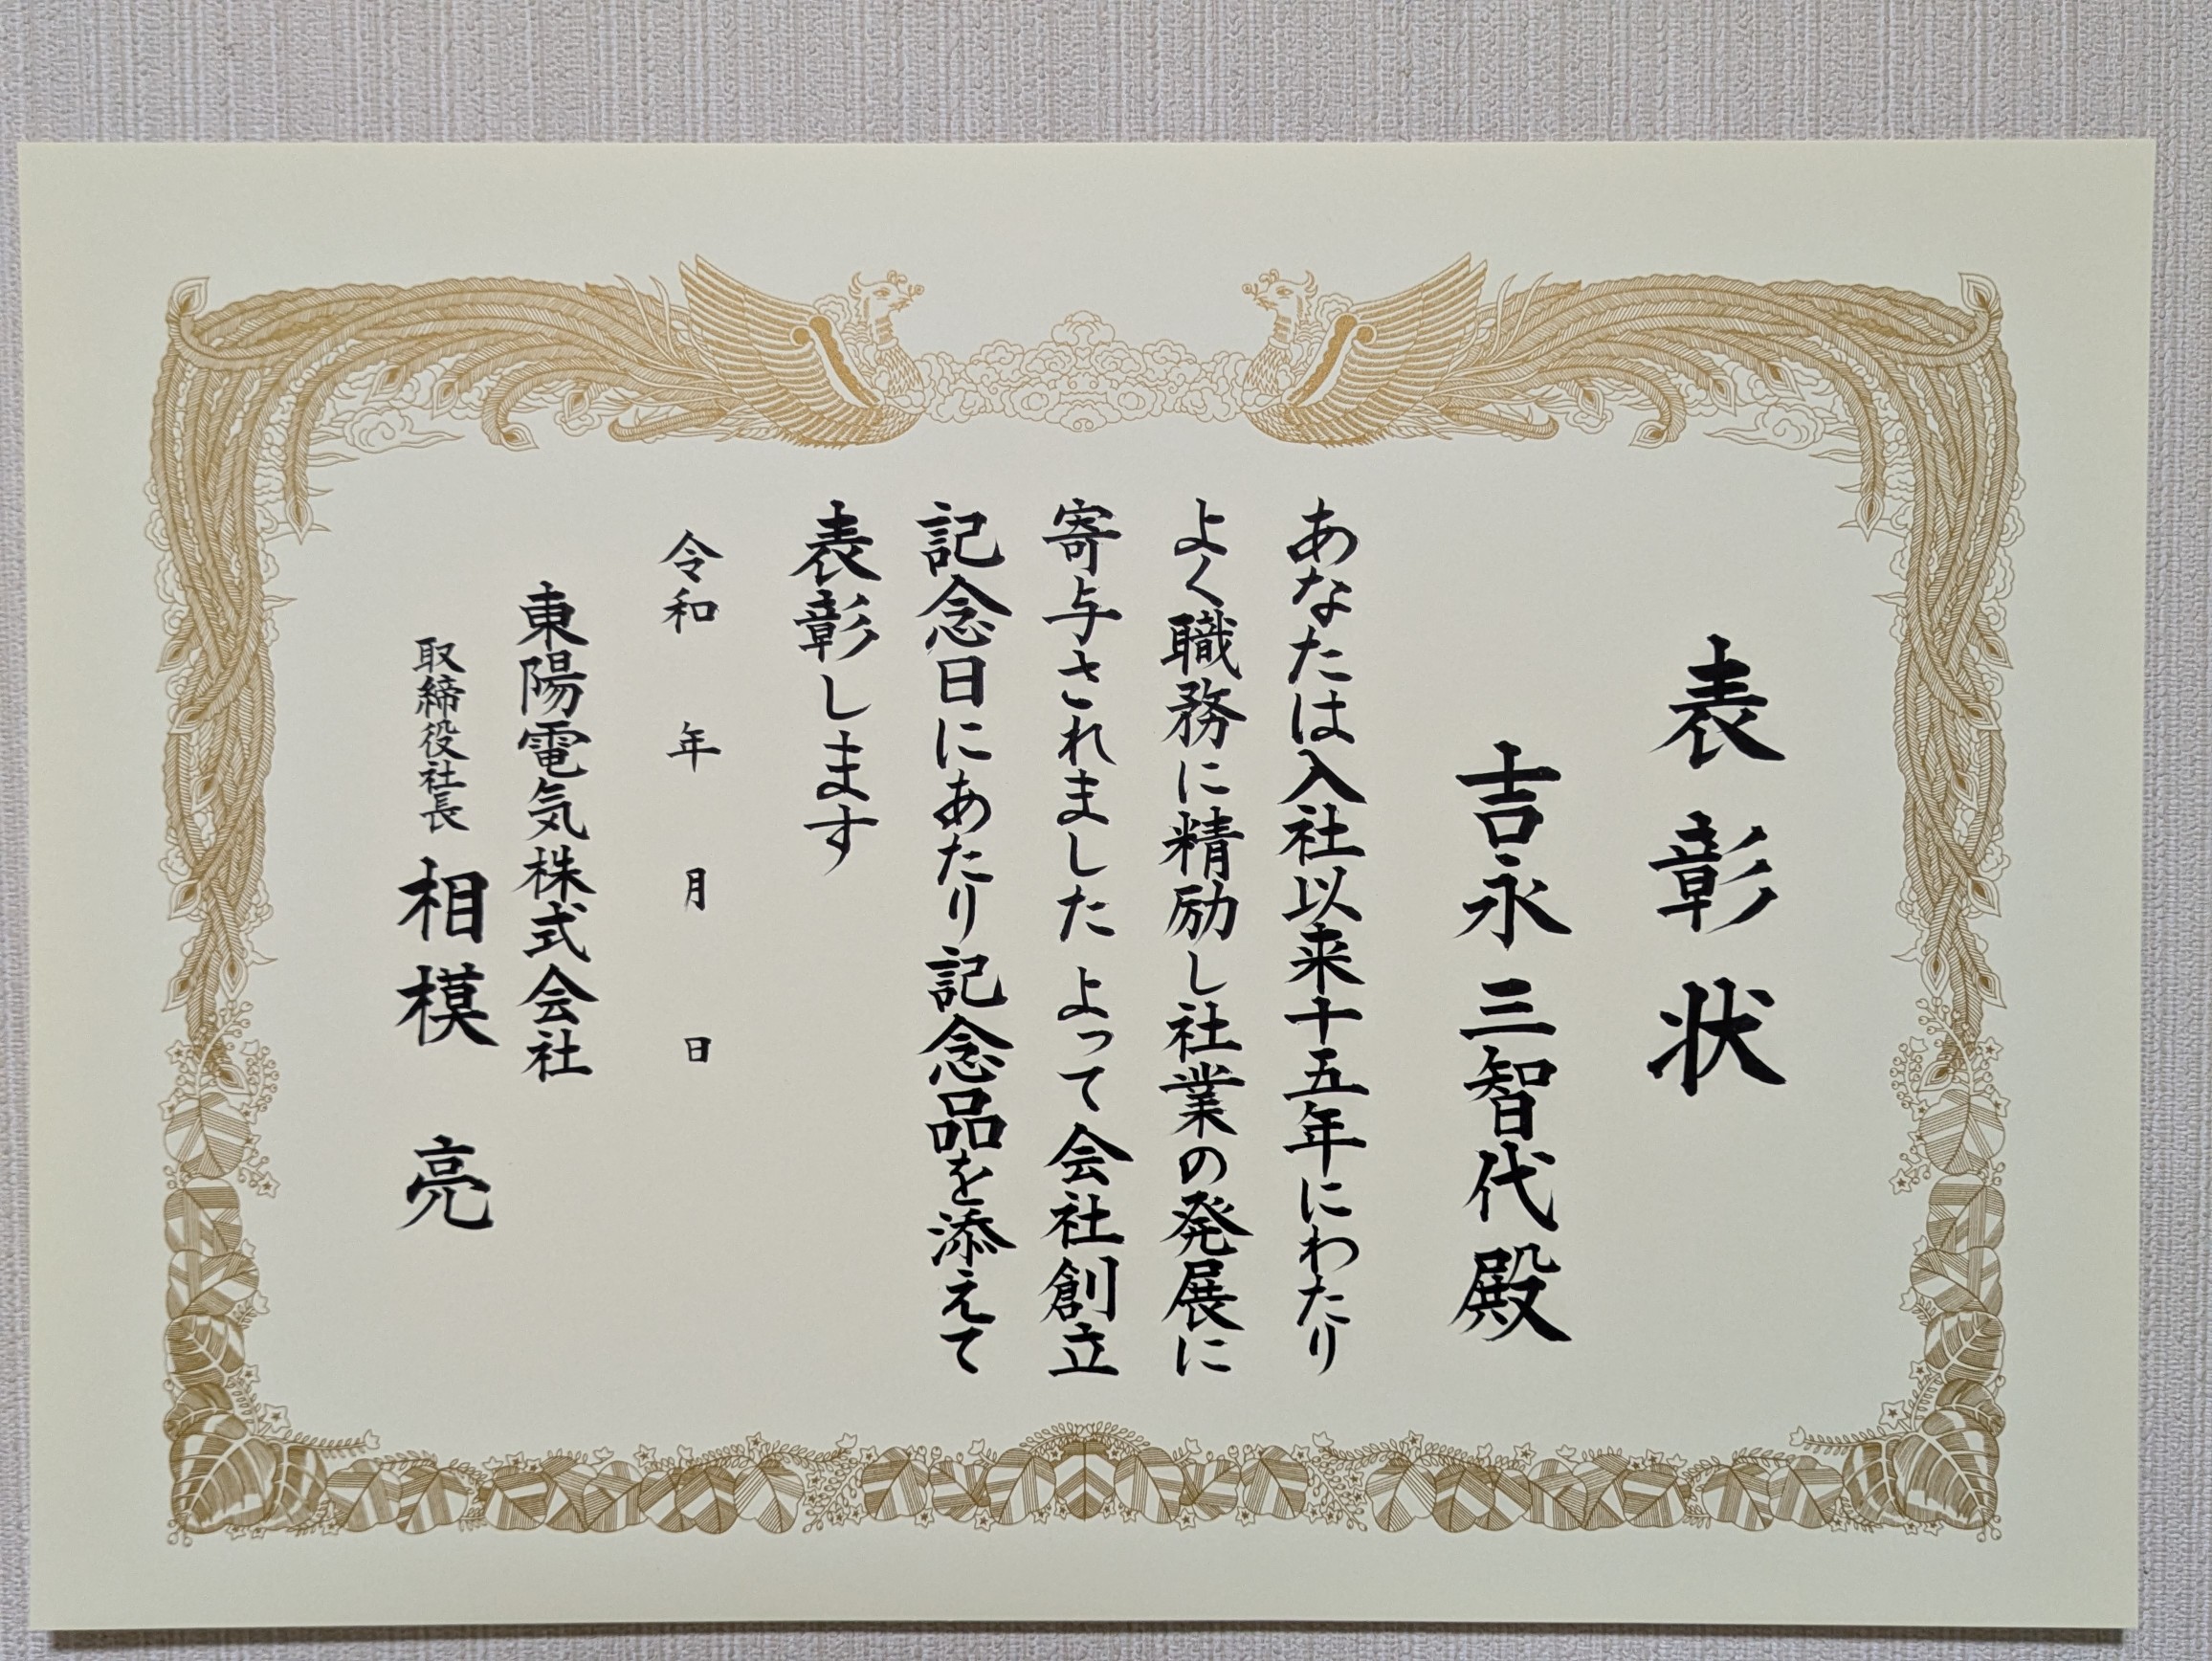 表彰状
吉永三智代殿
あなたは入社以来十五年にわたり
よく職務に精励し社業の発展に
寄与されました よって会社創立
記念日にあたり記念品を添えて
表彰します
令和 年 月 日
東陽電気株式会社
取締役社長 相模 亮